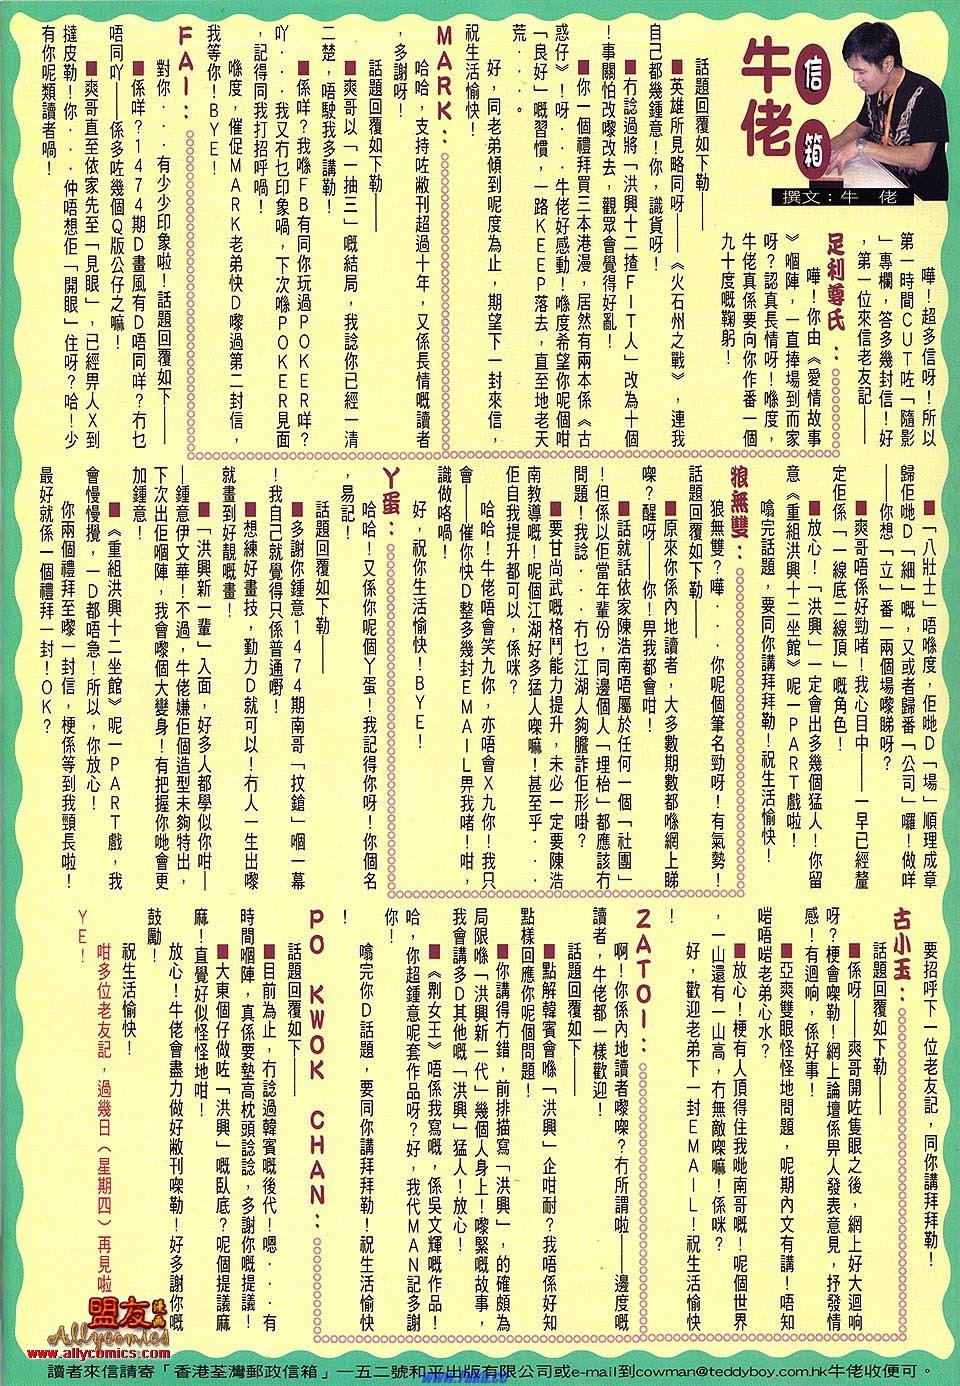 牛佬
信箱
撰文：牛　佬
嘩！超多信呀！所以
第一時間ＣＵＴ咗「隨影
」專欄，答多幾封信！好
，第一位來信老友記——
足利尊氏：
嘩！你由《愛情故事
》嗰陣，一直捧場到而家
呀？認真長情呀！喺度，
牛佬真係要向你作番一個
九十度嘅鞠躬！
話題回覆如下勒——
■英雄所見略同呀——《火石州之戰》，連我
自己都幾鍾意！你，識貨呀！
■冇諗過將「洪興十二揸ＦＩＴ人」改為十個
！事關怕改嚟改去，觀眾會覺得好亂！
■你一個禮拜買三本港漫，居然有兩本係《古
惑仔》！呀．．．牛佬好感動！喺度希望你呢個咁
「良好」嘅習慣，一路ＫＥＥＰ落去，直至地老天
荒．．．。
好，同老弟傾到呢度為止，期望下一封來信，
祝生活愉快！
ＭＡＲＫ：
哈哈，支持咗敝刊超過十年，又係長情嘅讀者
，多謝呀！
話題回覆如下勒——
■爽哥以「一抽三」嘅結局，我諗你已經一清
二楚，唔駛我多講勒！
■係咩？我喺ＦＢ有同你玩過ＰＯＫＥＲ咩？
吖．．．我又冇乜印象喎，下次喺ＰＯＫＥＲ見面
，記得同我打招呼喎！
喺度，催促ＭＡＲＫ老弟快Ｄ嚟過第二封信，
我等你！ＢＹＥ！
ＦＡＩ：
對你．．．有少少印象啦！話題回覆如下——
■係咩？１４７４期Ｄ畫風有Ｄ唔同咩？冇乜
唔同吖——係多咗幾個Ｑ版公仔之嘛！
■爽哥直至依家先至「見眼」，已經畀人Ｘ到
撻皮勒！你．．．仲唔想佢「開眼」住呀？哈！少
有你呢類讀者喎！
■「八壯士」唔喺度，佢哋Ｄ「場」順理成章
歸佢哋Ｄ「細」嘅，又或者歸番「公司」囉！做咩
——你想「立」番一兩個場嚟睇呀？
■爽哥唔係好勁啫！我心目中——一早已經釐
定佢係「一線底二線頂」嘅角色！
■放心！「洪興」一定會出多幾個猛人！你留
意《重組洪興十二坐館》呢一ＰＡＲＴ戲啦！
噏完話題，要同你講拜拜勒！祝生活愉快！
狼無雙：
狼無雙？嘩．．．你呢個筆名勁呀！有氣勢！
話題回覆如下勒——
■原來你係內地讀者，大多數期數都喺網上睇
㗎？醒呀——你！畀我都會咁！
■話就話依家陳浩南唔屬於任何一個「社團」
！但係以佢當年輩份，同邊個人「埋枱」都應該冇
問題！我諗．．．冇乜江湖人夠膽詐佢形啩？
■要甘尚武嘅格鬥能力提升，未必一定要陳浩
南教導嘅！呢個江湖好多猛人㗎嘛！甚至乎．．．
佢自我提升都可以，係咪？
哈哈！牛佬唔會笑九你，亦唔會Ｘ九你！我只
會——催你快Ｄ整多幾封ＥＭＡＩＬ畀我啫！咁，
識做咯喎！
好，祝你生活愉快！ＢＹＥ！
丫蛋：
哈哈！又係你呢個丫蛋！我記得你呀！你個名
，易記！
話題回覆如下勒——
■多謝你鍾意１４７４期南哥「扙鎗」嗰一幕
！我自己就覺得只係普通嘢！
■想練好畫技，勤力Ｄ就可以！冇人一生出嚟
就畫到好靚嘅畫！
■「洪興新一輩」入面，好多人都學似你咁—
—鍾意伊文華！不過，牛佬嫌佢個造型未夠特出，
下次出佢嗰陣，我會嚟個大變身！有把握你哋會更
加鍾意！
■《重組洪興十二坐館》呢一ＰＡＲＴ戲，我
會慢慢攪，一Ｄ都唔急！所以，你放心！
你兩個禮拜至嚟一封信，梗係等到我頸長啦！
最好就係一個禮拜一封！ＯＫ？
要招呼下一位老友記，同你講拜拜勒！
古小玉：
話題回覆如下勒——
■係呀——爽哥開咗隻眼之後，網上好大迴响
呀？梗會㗎勒！網上論壇係畀人發表意見，抒發情
感！有迴响，係好事！
■亞爽雙眼怪怪地問題，呢期內文有講！唔知
啱唔啱老弟心水？
■放心！梗有人頂得住我哋南哥嘅！呢個世界
，一山還有一山高，冇無敵㗎嘛！係咪？
好，歡迎老弟下一封ＥＭＡＩＬ！祝生活愉快
！
ＺＡＴＯＩ：
啊！你係內地讀者嚟㗎？冇所謂啦——邊度嘅
讀者，牛佬都一樣歡迎！
話題回覆如下——
■點解韓賓會喺「洪興」企咁耐？我唔係好知
點樣回應你呢個問題！
■你講得冇錯，前排描寫「洪興」，的確頗為
局限喺「洪興新一代」幾個人身上！嚟緊嘅故事，
我會講多Ｄ其他嘅「洪興」猛人！放心！
■《剕女王》唔係我寫嘅，係吳文輝嘅作品！
哈，你超鍾意呢套作品呀？好，我代ＭＡＮ記多謝
你！
噏完你Ｄ話題，要同你講拜拜勒！祝生活愉快
！
ＰＯ　ＫＷＯＫ　ＣＨＡＮ：
話題回覆如下——
■目前為止，冇諗過韓賓嘅後代！嗯．．．有
時間嗰陣，真係要墊高枕頭諗諗，多謝你嘅提議！
■大東個仔做咗「洪興」嘅臥底？呢個提議麻
麻！直覺好似怪怪地咁！
放心！牛佬會盡力做好敝刊㗎勒！好多謝你嘅
鼓勵！
祝生活愉快！
咁多位老友記，過幾日（星期四）再見啦
ＹＥ！
盟友
Allycomics
www.allycomics.com
讀者來信請寄「香港荃灣郵政信箱」一五二號和平出版有限公司或e-mail到cowman@teddyboy.com.hk牛佬收便可。